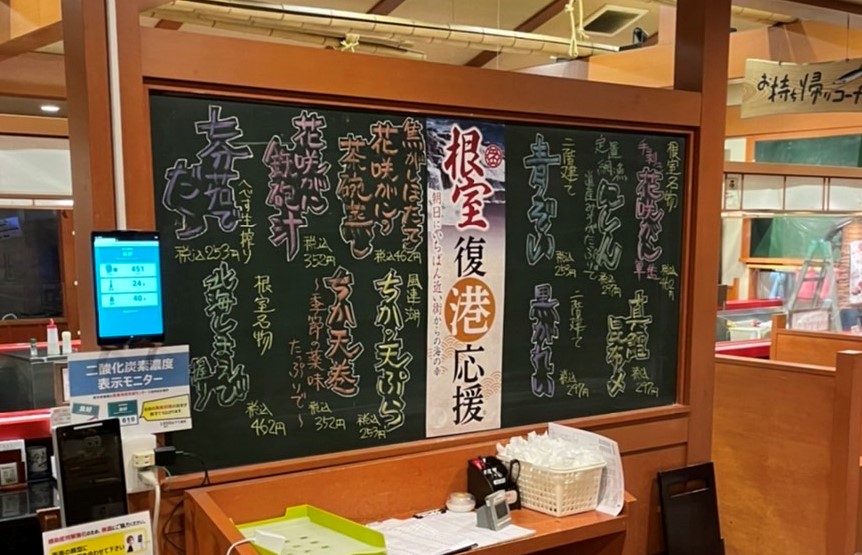 お持ち帰りコーナ
根室名物
手剥き
花咲がに
軍艦
税込
462円
にしん
税込
297円
二階建て
青ぞい
税込
253円
真鯛
昆布〆
税込
297円
二階建て
黒がれい
税込
297円
根室
復
港
応援
朝日にいちばん近い街からの海の幸
焦がしほたて
花咲がに
茶碗蒸し
税込462円
花咲がに
鉄砲汁
税込
352円
税込253円
風連湖
ちか天ぷら
税込
253円
ちか天巻
〜季節の薬味
たっぷりで〜
税込
352円
根室名物
北海しまえび
握り
税込
462円
451
24
40
二酸化炭素濃度
表示モニター